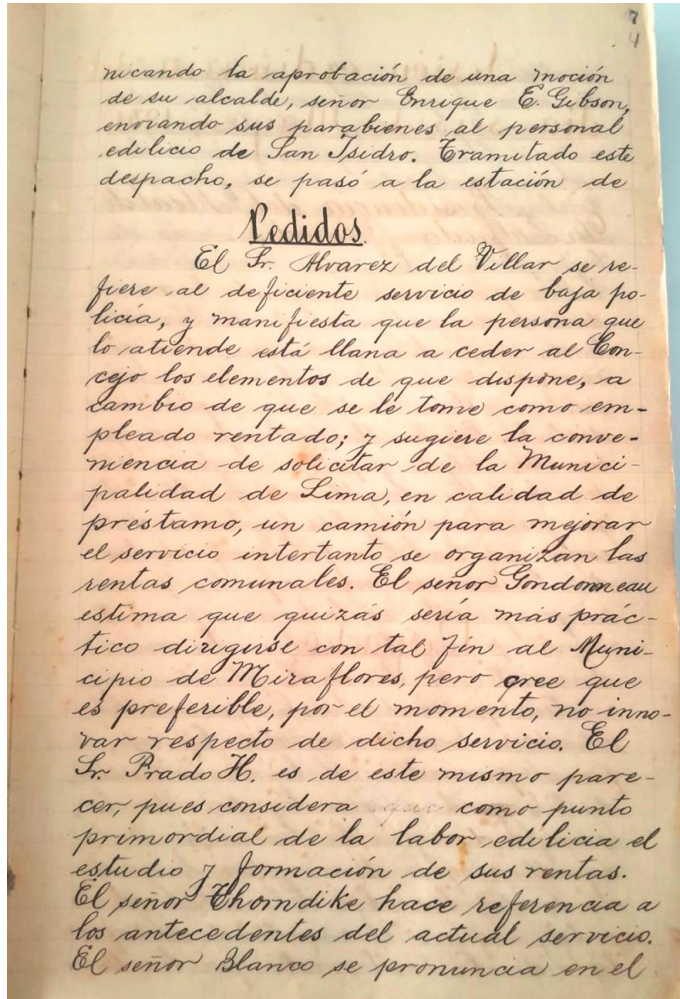 7
4
nicando la aprobación de una moción
de su alcalde, señor Enrique E. Gibson,
enviando sus parabienes al personal
edilicio de San Isidro. Tramitado este
despacho, se pasó a la estación de
Pedidos.
El Sr. Alvarez del Villar se re-
fiere al deficiente servicio de baja po-
licía, y manifiesta que la persona que
lo atiende está llana a ceder al Con-
cejo los elementos de que dispone, a
cambio de que se le tome como em-
pleado rentado; y sugiere la conve-
niencia de solicitar de la Munici-
palidad de Lima, en calidad de
préstamo, un camión para mejorar
el servicio intertanto se organizan las
rentas comunales. El señor Gondonneau
estima que quizás sería más prác-
tico dirigirse con tal fin al Muni-
cipio de Miraflores, pero cree que
es preferible, por el momento, no inno-
var respecto de dicho servicio. El
Sr. Prado H. es de este mismo pare-
cer, pues considera como punto
primordial de la labor edilicia el
estudio y formación de sus rentas.
El señor Thorndike hace referencia a
los antecedentes del actual servicio.
El señor Blanco se pronuncia en el